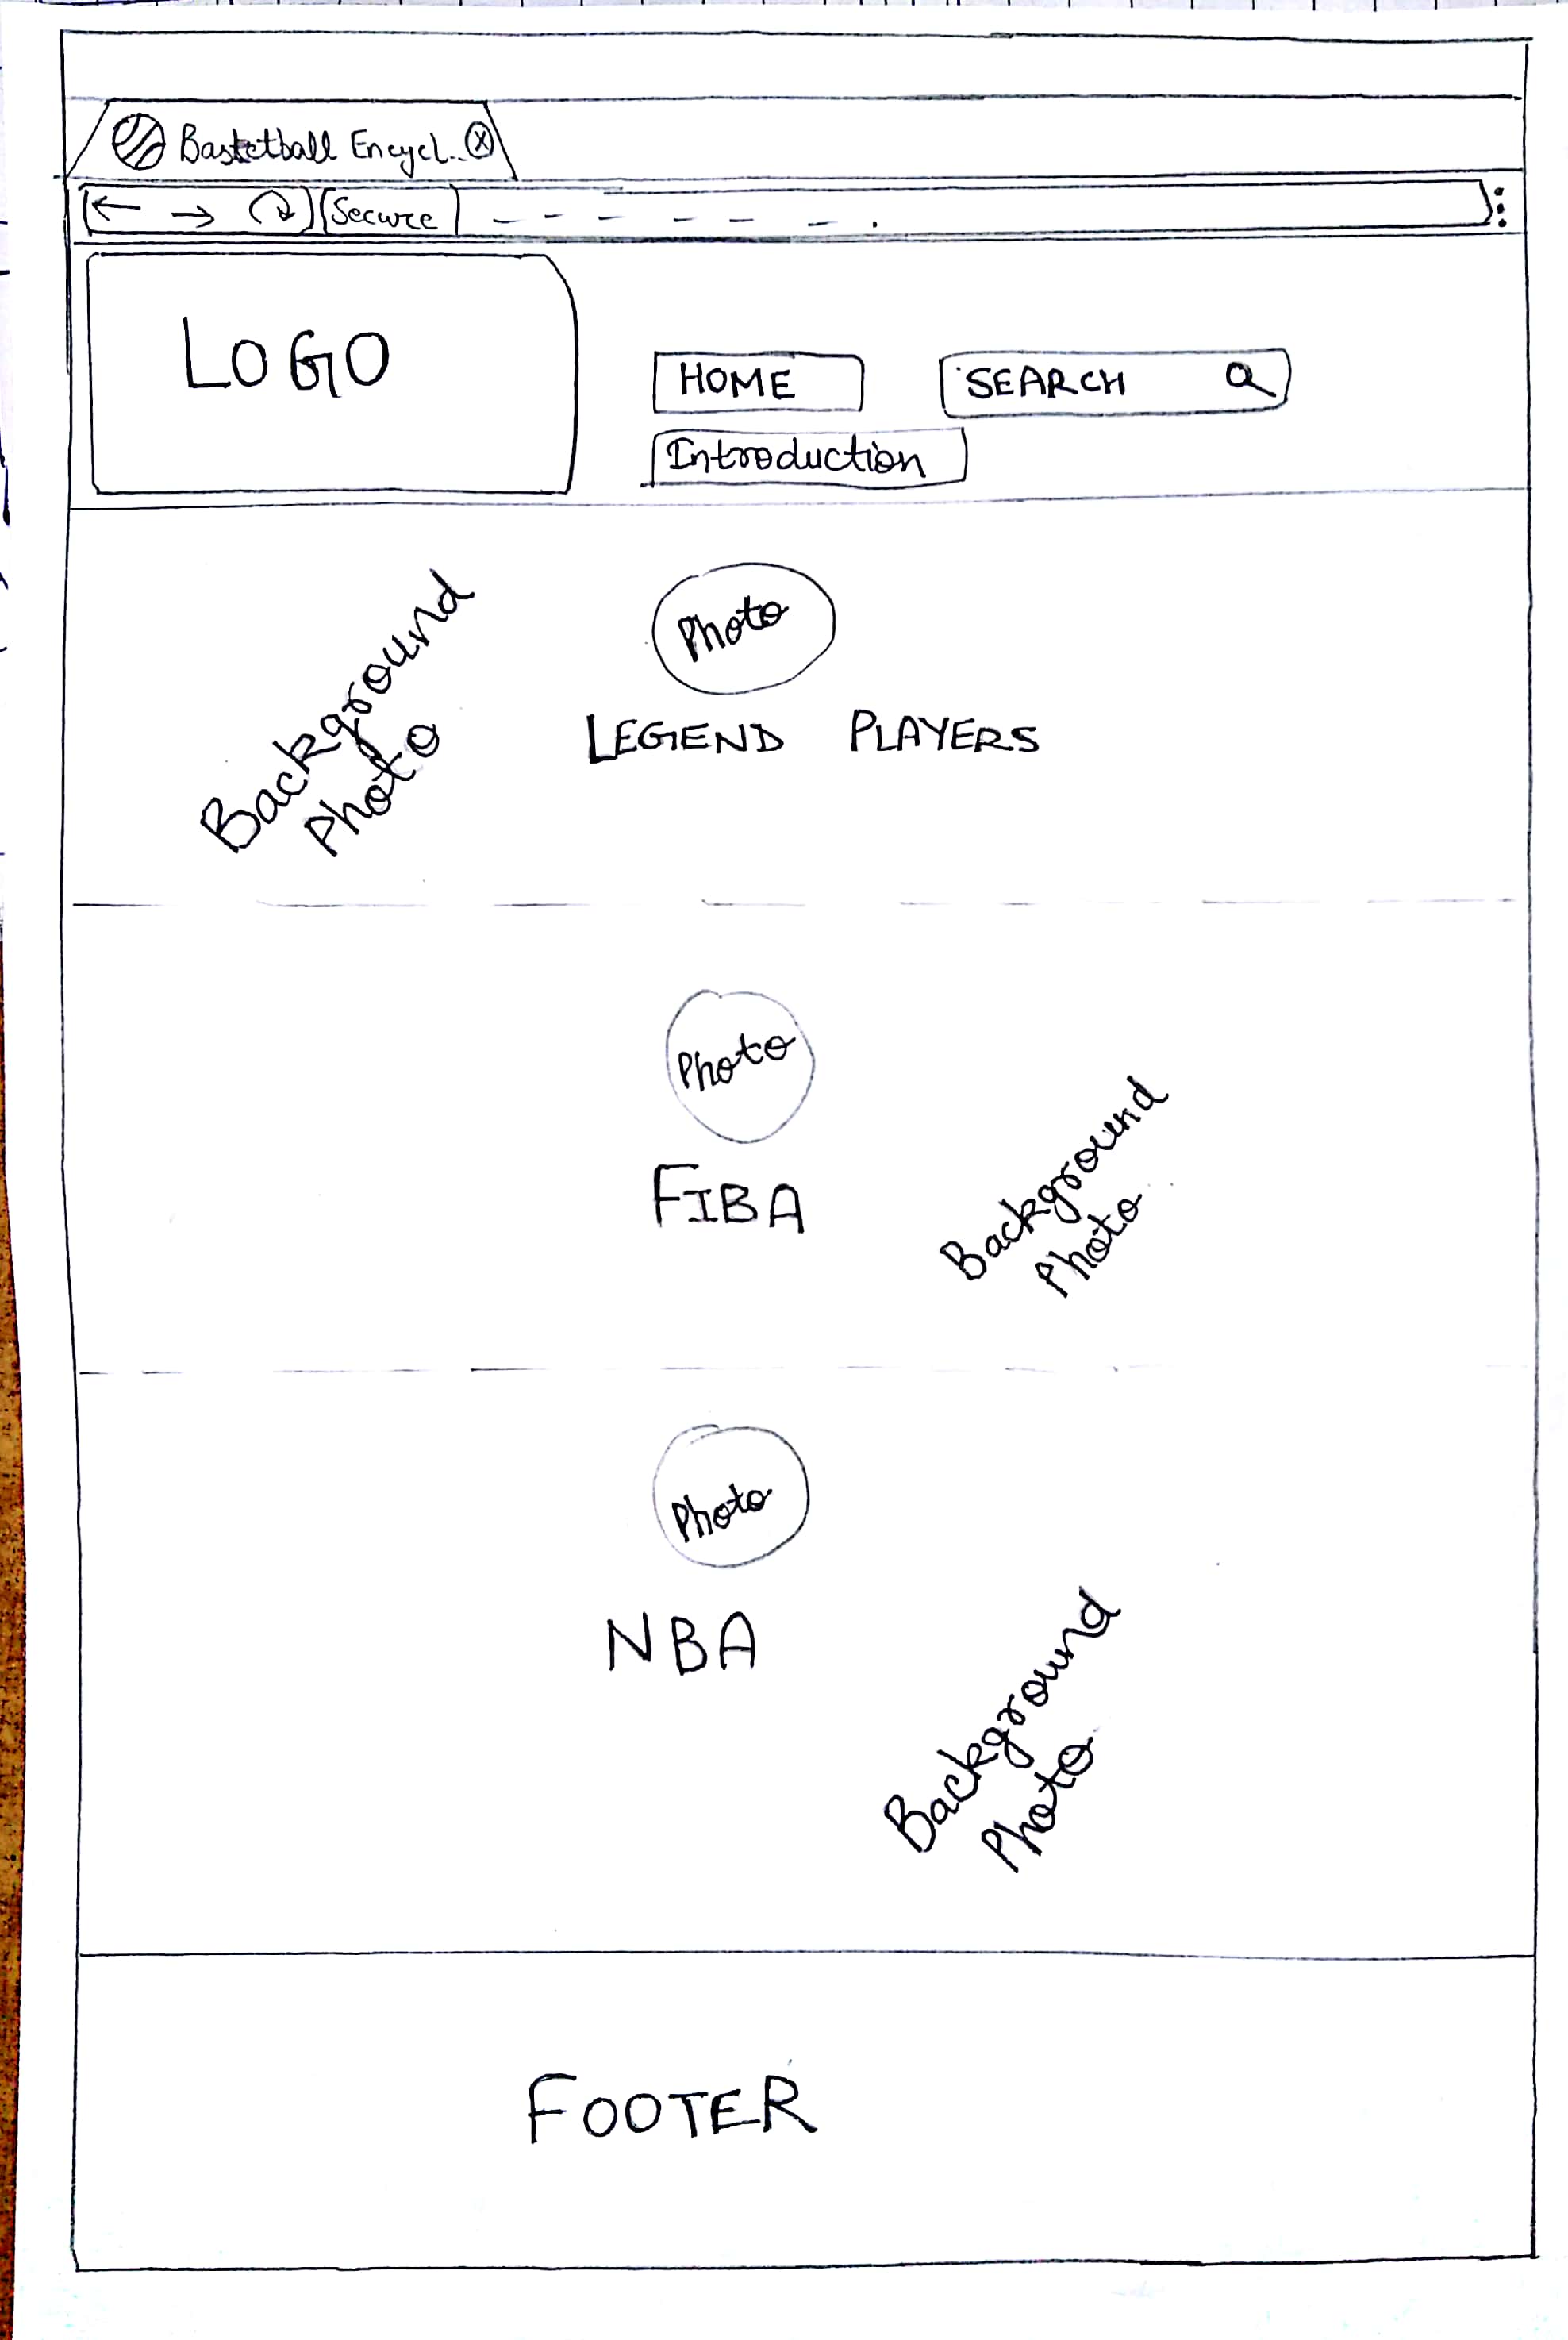 Basketball Encycl..
Secure
LOGO
HOME
SEARCH
Introduction
Photo
Background
Photo
LEGEND PLAYERS
Photo
FIBA
Background
Photo
Photo
NBA
Background
Photo
FOOTER